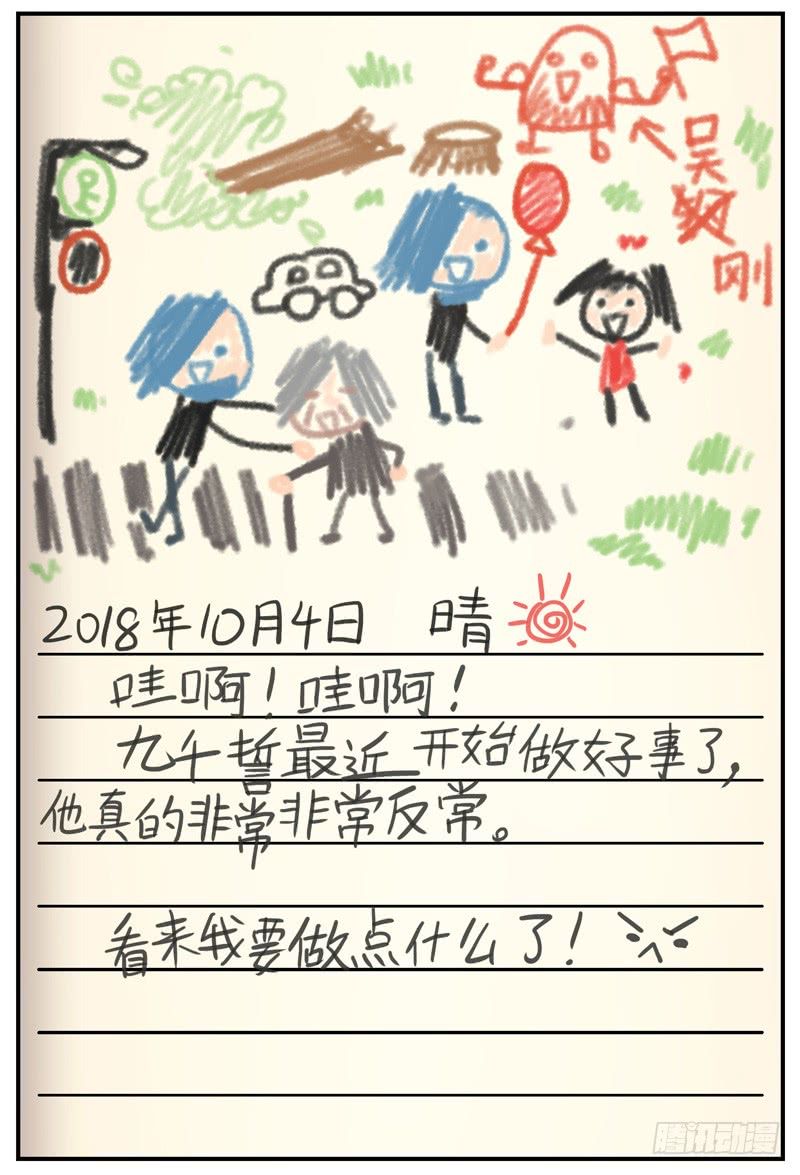 吴
刚
2018年10月4日 晴
哇啊！哇啊！
九千誓最近开始做好事了，
他真的非常非常反常。
看来我要做点什么了！
腾讯动漫